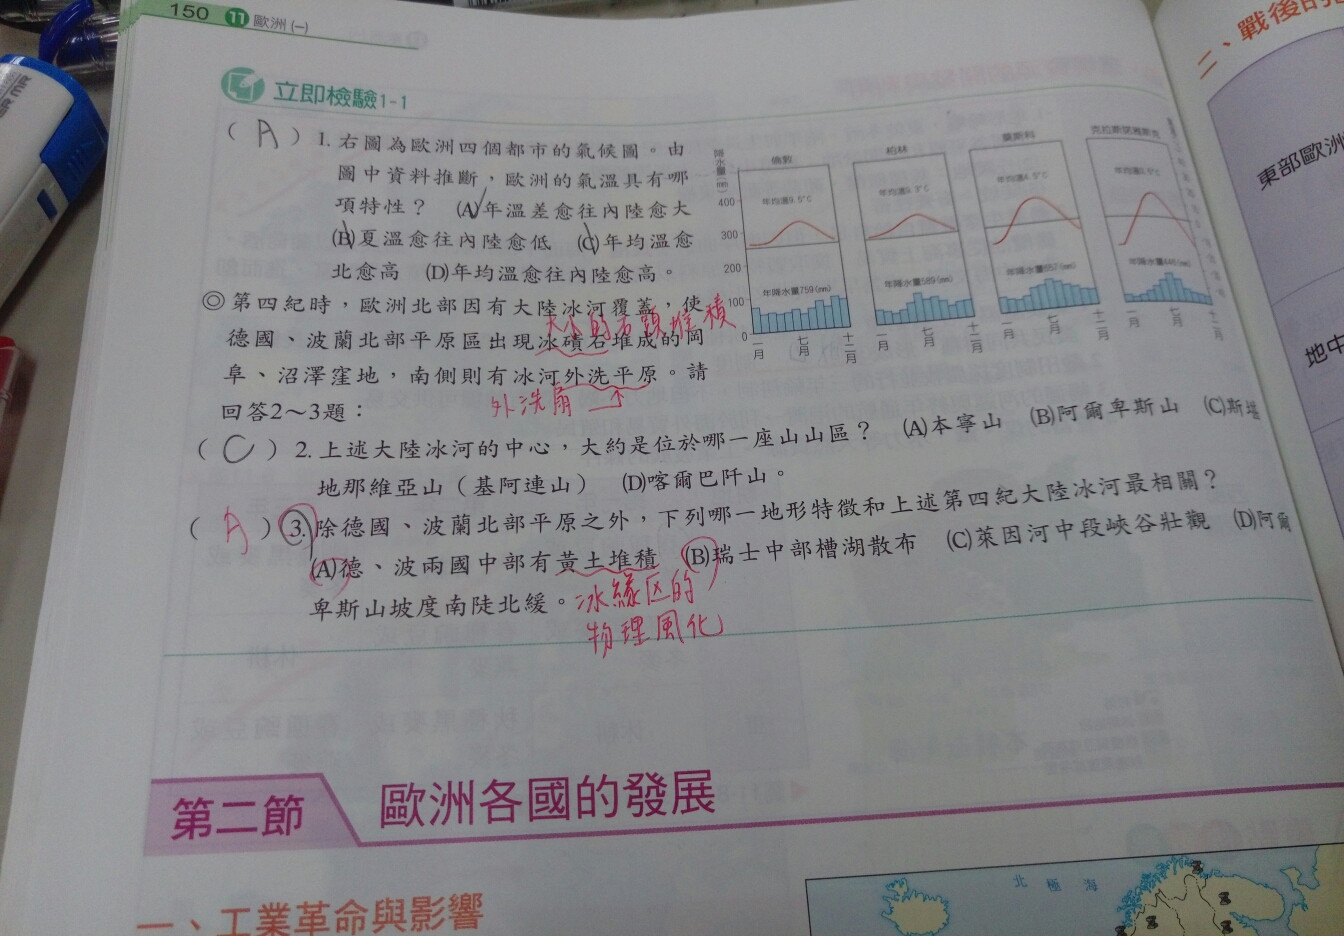 150 11 歐洲(一)
立即檢驗1-1
( A ) 1. 右圖為歐洲四個都市的氣候圖。由
圖中資料推斷，歐洲的氣溫具有哪
項特性？ (A)年溫差愈往內陸愈大
(B)夏溫愈往內陸愈低 (C)年均溫愈
北愈高 (D)年均溫愈往內陸愈高。
降水量(mm)
400
300
200
100
0
倫敦
年均溫9.5°C
年降水量759(mm)
一月 七月 十二月
柏林
年降水量589(mm)
一月 七月 十二月
莫斯科
年降水量657(mm)
一月 七月 十二月
年降水量446(mm)
一月 七月 十二月
◎第四紀時，歐洲北部因有大陸冰河覆蓋，使
大小的石頭堆積
德國、波蘭北部平原區出現冰磧石堆成的岡
阜、沼澤窪地，南側則有冰河外洗平原。請
外洗扇
回答2～3題：
( C ) 2. 上述大陸冰河的中心，大約是位於哪一座山山區？ (A)本寧山 (B)阿爾卑斯山 (C)斯堪
地那維亞山（基阿連山） (D)喀爾巴阡山。
( A ) 3. 除德國、波蘭北部平原之外，下列哪一地形特徵和上述第四紀大陸冰河最相關？
(A)德、波兩國中部有黃土堆積 (B)瑞士中部槽湖散布 (C)萊因河中段峽谷壯觀 (D)阿爾
卑斯山坡度南陡北緩。
冰緣区的
物理風化
第二節 歐洲各國的發展
一、工業革命與影響
北極海
二、戰後的
東部歐洲
地中